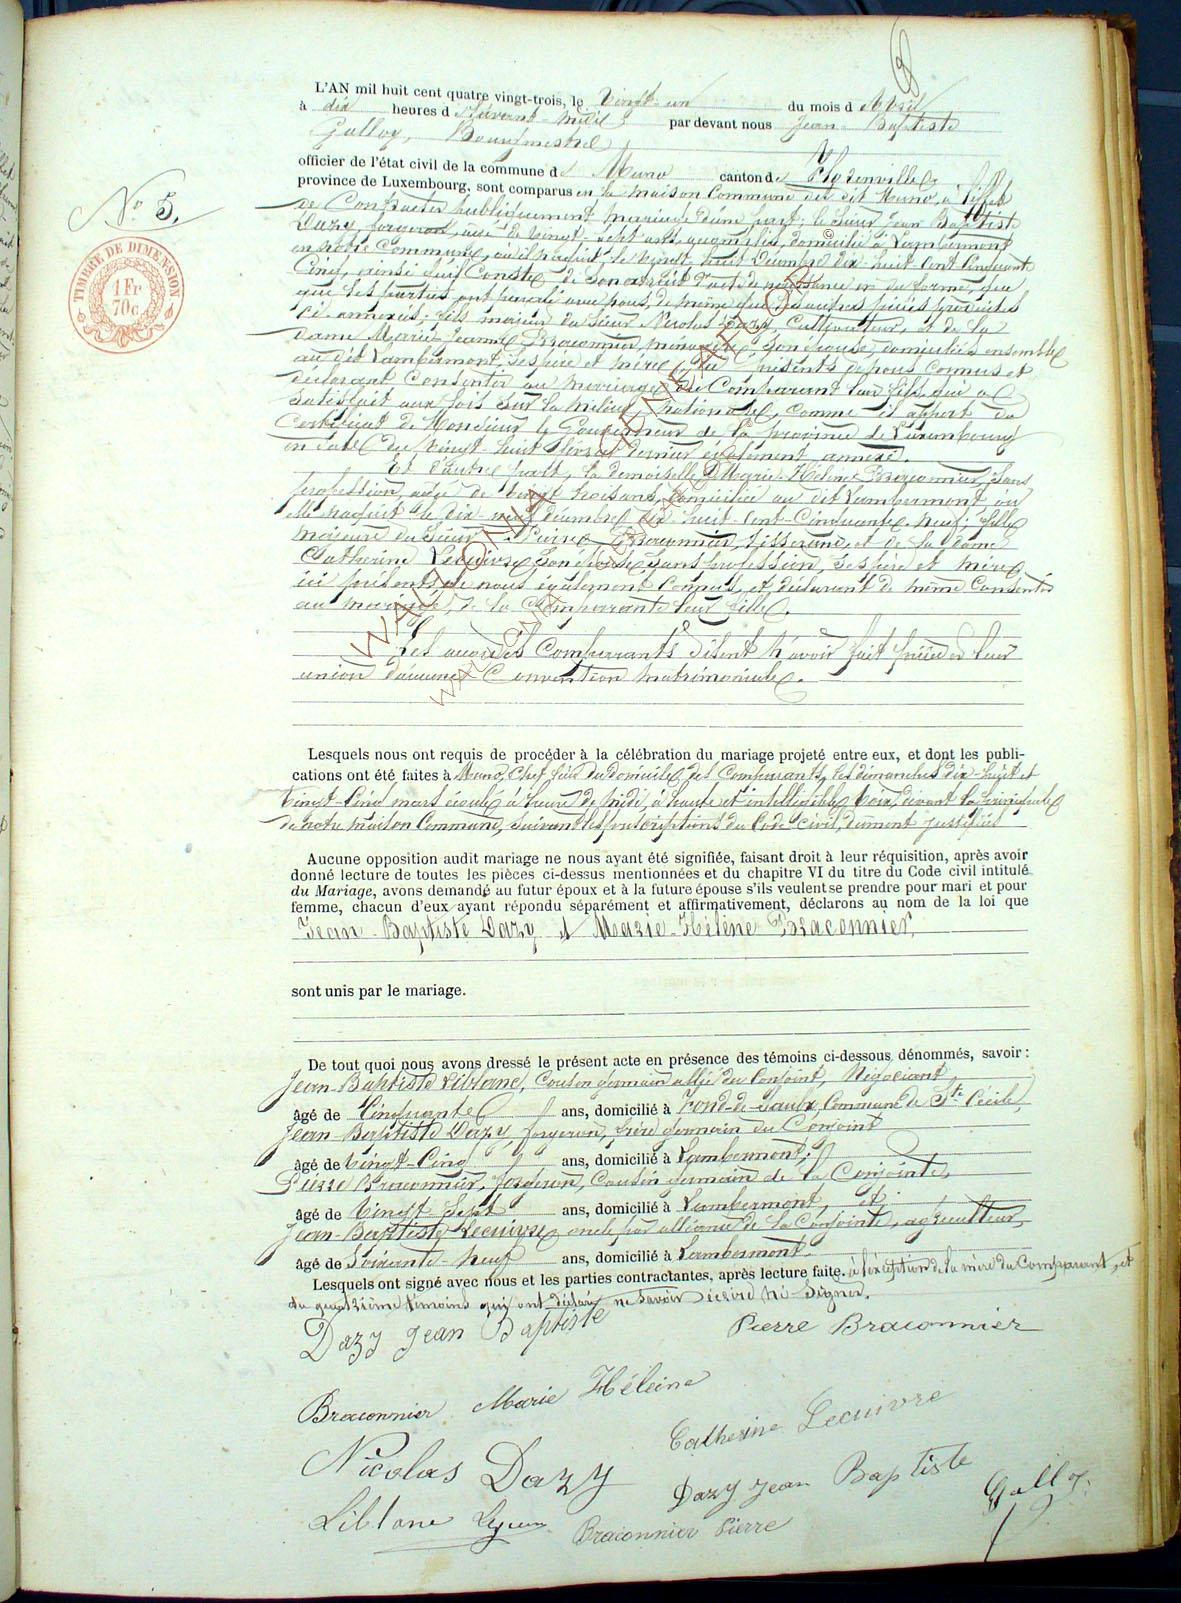 L'AN mil huit cent quatre vingt-trois, le Vingt-un du mois d'Avril
à dix heures d'Avant-midi, par devant nous Jean-Baptiste
Galloy, Bourgmestre
officier de l'état civil de la commune de Muno canton de Florenville
province de Luxembourg, sont comparus en la maison Commune du dit Muno, à l'effet
N° 5.
TIMBRE DE DIMENSION
1 Fr
70 c.
de Contracter publiquement mariage d'une part; le sieur Jean Baptiste
Dazy, forgeron, âgé de vingt-sept ans, domicilié à Lambermont
en notre Commune, où il naquit le vingt huit Décembre dix-huit-Cent Cinquante
Cinq, ainsi qu'il Conste de son extrait d'acte de naissance en due forme,
que les parties ont devant nous, de même que les autres pièces produites
ci-annexées; fils majeur du sieur Nicolas Dazy, Cultivateur, et de la
dame Marie-Jeanne Braconnier, ménagère, son épouse, domiciliés ensemble
au dit Lambermont, ses père et mère, ici présents, de nous Connus et
déclarant Consentir au mariage du Comparant leur fils, qui a
satisfait aux lois sur la milice nationale, comme il appert du
Certificat de Monsieur le Gouverneur de la province de Luxembourg
en date du vingt-huit février dernier également annexé.
Et d'autre part, la demoiselle Marie-Hélène Braconnier, sans
profession, âgée de vingt trois ans, domiciliée au dit Lambermont où
elle naquit le dix-neuf Décembre dix-huit-Cent-Cinquante-neuf; fille
majeure du sieur Pierre Braconnier, tisserand, et de la dame
Catherine Lecuivre, son épouse, sans profession, ses père et mère,
ici présents, de nous également Connus, et déclarant de même Consentir
au mariage, de la Comparante leur fille.
Les susdits Comparants disent n'avoir fait précéder leur
union d'aucune Convention matrimoniale.
WALLONIA GENEALOGY
Lesquels nous ont requis de procéder à la célébration du mariage projeté entre eux, et dont les publi-
cations ont été faites à Muno, Chef lieu du domicile des Comparants, les dimanches dix-huit et
vingt-Cinq mars écoulé, à l'heure de midi, à haute et intelligible voix, devant la principale
de notre maison Commune, suivant les prescriptions du Code Civil, dûment justifiées
Aucune opposition audit mariage ne nous ayant été signifiée, faisant droit à leur réquisition, après avoir
donné lecture de toutes les pièces ci-dessus mentionnées et du chapitre VI du titre du Code civil intitulé
du Mariage, avons demandé au futur époux et à la future épouse s'ils veulent se prendre pour mari et pour
femme, chacun d'eux ayant répondu séparément et affirmativement, déclarons au nom de la loi que
Jean-Baptiste Dazy et Marie-Hélène Braconnier,
sont unis par le mariage.
De tout quoi nous avons dressé le présent acte en présence des témoins ci-dessous dénommés, savoir :
Jean-Baptiste Liblanc, Cousin germain allié du Conjoint, Négociant,
âgé de Cinquante ans, domicilié à Fond-de-Laulx, Commune de Ste Cécile,
Jean-Baptiste Dazy, forgeron, frère germain du Conjoint
âgé de Vingt-Cinq ans, domicilié à Lambermont;
Pierre Braconnier, forgeron, Cousin germain de la Conjointe,
âgé de Vingt-Sept ans, domicilié à Lambermont, et
Jean-Baptiste Lecuivre, oncle par alliance de la Conjointe, agriculteur,
âgé de Soixante-Neuf ans, domicilié à Lambermont.
Lesquels ont signé avec nous et les parties contractantes, après lecture faite. à l'exception de la mère du Comparant, et
du quatrième témoins qui ont déclaré ne savoir écrire ni signer.
Dazy Jean Baptiste Pierre Braconnier
Braconnier Marie Héleine
Catherine Lecuivre
Nicolas Dazy
Dazy Jean Baptiste
Galloy
Liblanc
Braconnier Pierre